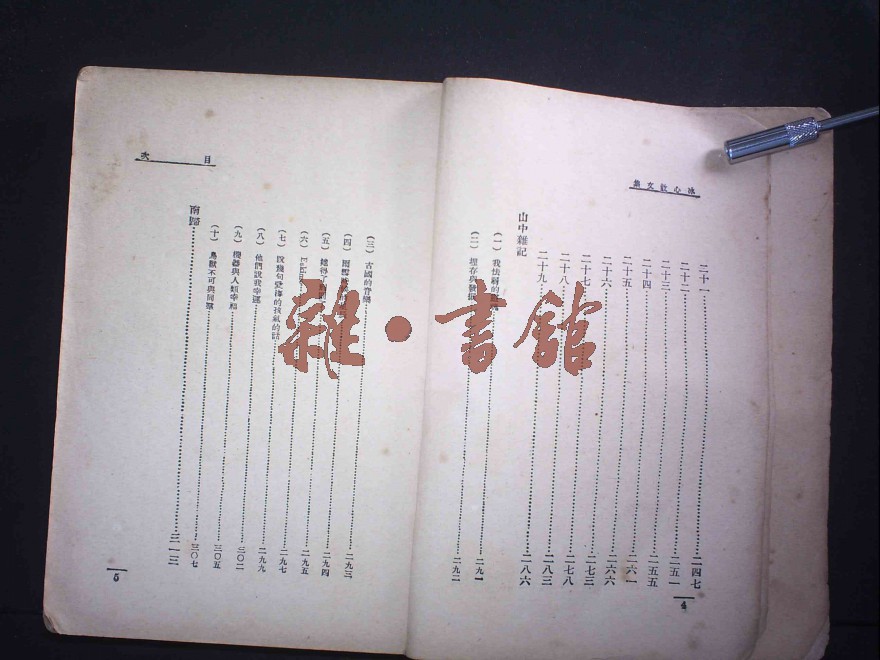 冰心散文集
二十一……二四七
二十二……二五一
二十三……二五五
二十四……二六一
二十五……二六六
二十六……二七三
二十七……二七八
二十八……二八三
二十九……二八六
山中雜記
(一) 我怯弱的……二九一
(二) 埋存與發掘……二九二
4
目次
(三) 古國的音樂……二九三
(四) 雨雪時……二九四
(五) 她得了……二九五
(六) ……二九七
(七) 說幾句愛海的孩氣的話……二九九
(八) 他們說我幸運……三〇二
(九) 機器與人類幸福……三〇五
(十) 鳥獸不可與同羣……三〇七
南歸……三一三
5
雜·書館